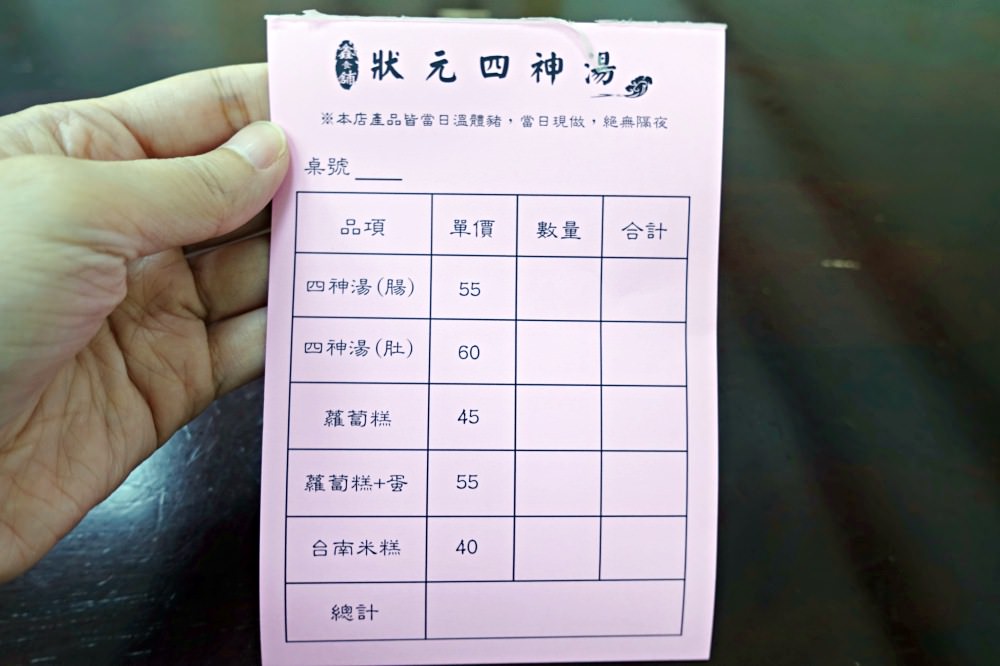 鑫食舖 狀元四神湯
※本店產品皆當日溫體豬，當日現做，絕無隔夜
桌號____
品項 單價 數量 合計
四神湯(腸) 55
四神湯(肚) 60
蘿蔔糕 45
蘿蔔糕+蛋 55
台南米糕 40
總計